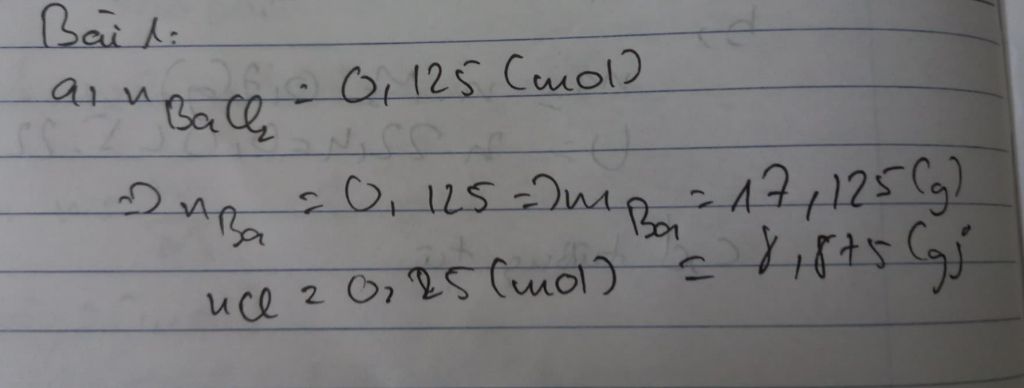 Bài 1:
a, n BaCl₂ = 0,125 (mol)
=> n Ba = 0,125 => m Ba = 17,125 (g)
nCl = 0,25 (mol) = 8,875 (g)